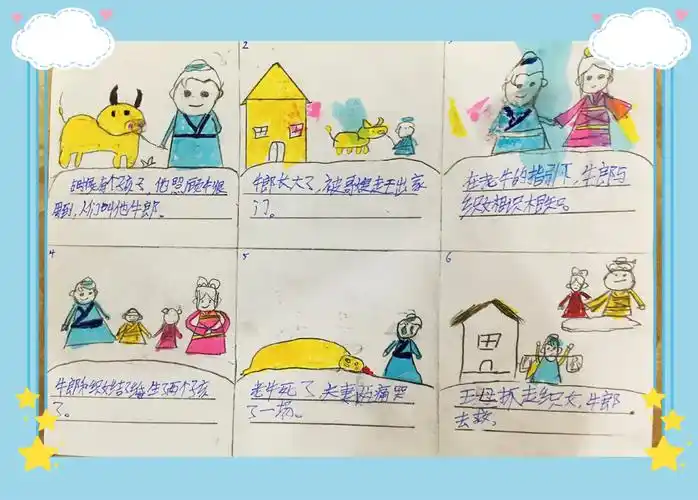 有个孩子，他照顾牛很
周到，人们叫他牛郎。
2
牛郎长大了，被哥嫂赶出家
门。
在老牛的指引下，牛郎与
织女相识相知。
4
牛郎和织女结了婚，生了两个孩
子。
5
老牛死了，夫妻俩痛哭
了一场。
6
王母抓走织女，牛郎
去救。